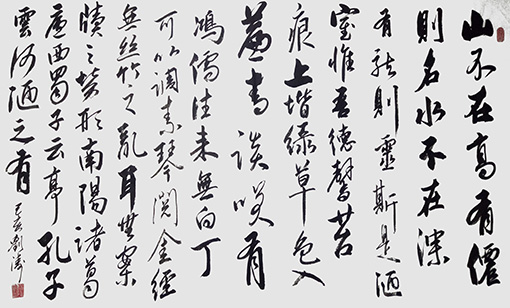 山不在高有僊
則名水不在深
有龍則靈斯是陋
室惟吾德馨苔
痕上堦綠草色入
簾青談咲有
鴻儒往来無白丁
可以調素琴閱金經
無絲竹之亂耳無案
牘之勞形南陽諸葛
廬西蜀子云亭孔子
雲何陋之有
己亥劉濤